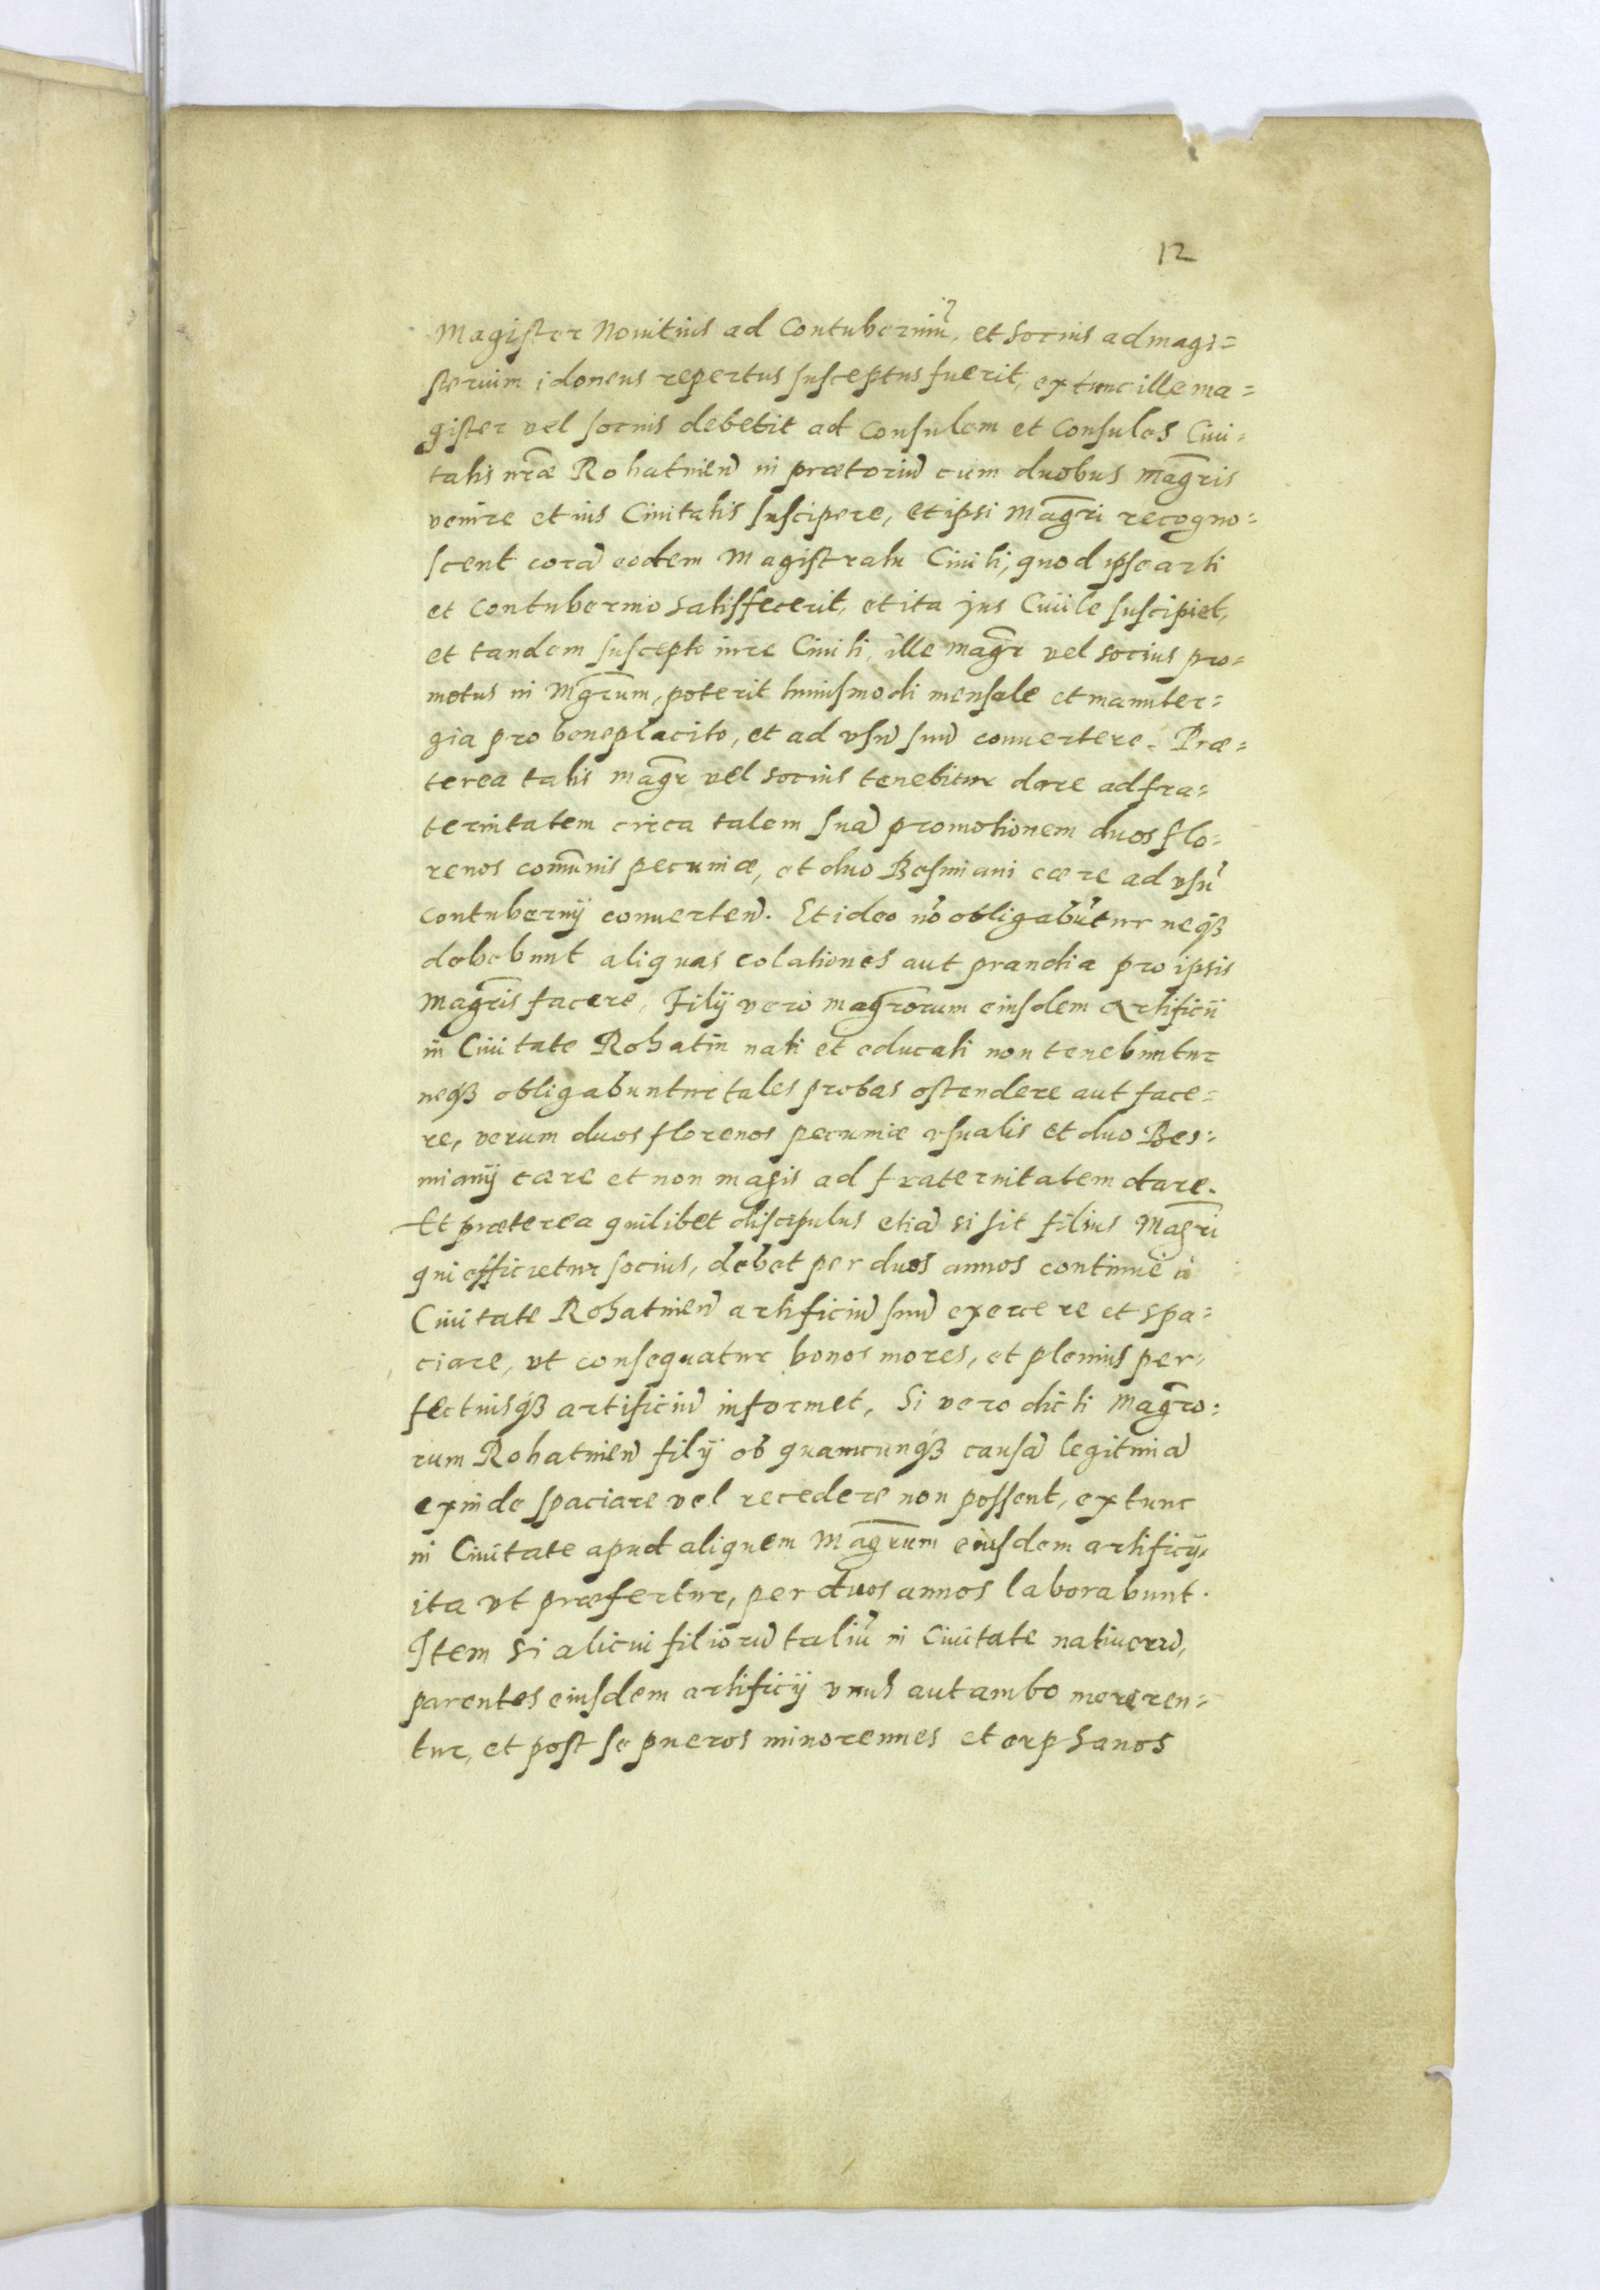 12
Magister Nouitius ad Contuberniũ, et Socius ad magi=
sterium idoneus repertus susceptus fuerit, extunc ille ma=
gister vel socius debebit ad Consulem et Consules Ciui=
tatis nr̃æ Rohatinen̄ in prætoriũ cum duobus mag̃ris
venire et ius Ciuitatis suscipere, et ipsi Mag̃ri recogno=
scent corã eodem Magistratu Ciuili, quod ipse arti
et Contubernio satisfecerit, et ita jus Ciuile suscipiet,
et tandem suscepto iure Ciuili, ille mag̃r vel socius pro=
motus in Mg̃rum, poterit huiusmodi mensale et manuter=
gia pro beneplacito, et ad vsũ suũ conuertere. Præ=
terea talis mag̃r vel socius tenebitur dare ad fra=
ternitatem circa talem suã promotionem duos flo=
renos com̃unis pecuniæ, et duo Besmiani cære ad vsũ
contubernij conuerten̄. Et ideo nõ obligabũtur neqз
debebunt aliquas colationes aut prandia pro ipsis
Mag̃ris facere, Filij vero mag̃rorum eiusdem artificii
in Ciuitate Rohatin̄ nati et educati non tenebuntur
neqз obligabuntur tales probas ostendere aut face=
re, verum duos florenos pecuniæ vsualis et duo Bes=
mianij cære et non magis ad fraternitatem dare.
Et præterea quilibet discipulus etiã si sit filius Mag̃ri
qui efficietur socius, debet per duos annos continue ĩ
Ciuitate Rohatinen̄ artificiũ suũ exercere et spa=
ciare, vt consequatur bonos mores, et plenius per=
fectiusqз artificiũ informet, Si vero dicti Mag̃ro=
rum Rohatinen̄ filij ob quamcunqз causã legitimã
exinde spaciare vel recedere non possent, extunc
in Ciuitate apud aliquem Mag̃rum eiusdem artificij,
ita vt præfertur, per duos annos laborabunt.
Item Si alicui filiorũ taliũ in Ciuitate natiuorũ,
parentes eiusdem artificij vnus aut ambo moreren=
tur, et post se pueros minorennes et orphanos